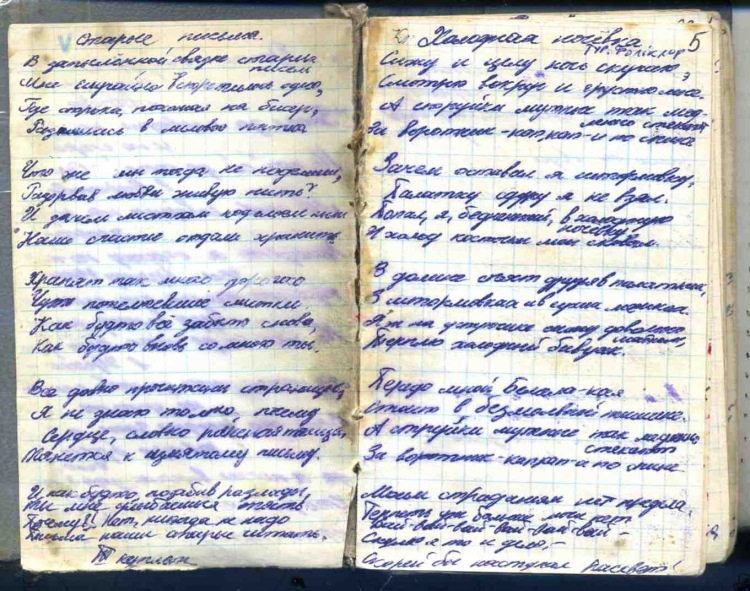 Старые письма.
В запылённой связке старых
писем
Мне случайно встретилось одно,
Где строка, похожая на бисер,
Расплылась в лиловое пятно
Что же мы тогда не поделили,
Разорвав любви живую нить?
И зачем листкам
Наше счастье отдали хранить.
Хранят так много дорогого
Чуть пожелтевшие листки
Как будто всё забыто снова,
Как будто вновь со мною ты.
Все давно прочитаны страницы,
Я не знаю только, почему
Сердце, словно раненая птица,
Тянется к измятому письму.
И как будто, позабыв разлады,
ты мне улыбаешься опять
Почему? Нет, никогда не надо
Письма наши старые читать.
куплет
Холодная ночёвка
Тур. Фольклор
5
Сижу и целу ночь скучаю,
Смотрю вокруг и грустно мне.
А струйки мутные так мед-
ленно стекают
За воротник-кап,кап-и по спине
Зачем оставил я штормовку,
Палатку сдуру я не взял.
Попал, я, бедненький, в холодную
ночёвку
И холод косточки мои сковал.
В долине спят друзья в палатках,
В штормовках и в сухих
Я ж на
Терплю холодный бивуак.
Передо мной Белала-кая
Стоит в безмолвной тишине.
А струйки мутные так медленно
стекают
За воротник-кап,кап-и по спине
Моим страданиям нет предела,
Терпеть уж больше мочи нет
Вай-вай-вай вай-вай-вай-
я то и дело,-
Скорей бы наступил рассвет!